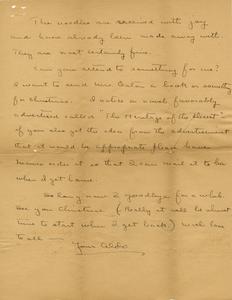 The needles are received with joy
and have already been made away with.
They are most certainly fine.
Can you attend to something for me?
I want to send Mrs. a book or something
for Christmas. I notice a novel favorably
advertised called The Heritage of the Desert
if you also get the idea from the advertisement
that it would be appropriate please have
order it so that I can mail it to her
when I get home.
So long now & goodbye for a while.
See you Christmas (Really it will be almost
time to start when I get back) With love
to all —
Your